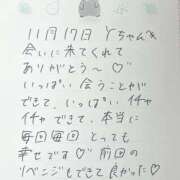 11月17日 Yちゃん
会いに来てくれて
ありがとう〜♡
いっぱい 会うことが
できて、いっぱい イチャ
イチャ できて、本当に
毎回毎回 とっても
幸せです♡ 前回の
リベンジもできて良かった♡